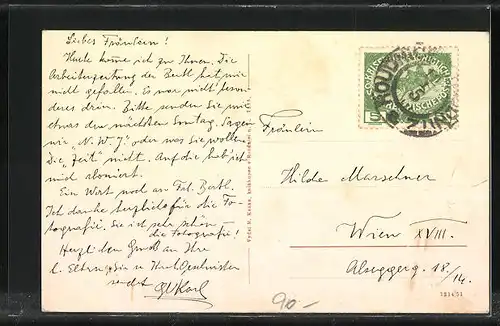 Liebes Fräulein!
Heute komme ich zu Ihnen. Die
Arbeiterzeitung der Bertl hat mir
nicht gefallen. Es war nicht beson-
deres drin. Bitte senden Sie mir
etwas den nächsten Sonntag.
mir „N. W. J." oder was Sie wollen.
Die „Zeit" nicht. Auf die hab ich
mich aboniert.
Ein Wort noch an Frl. Bertl.
Ich danke herzlich für die Fo-
tografie. Sie ist sehr schön
die Fotografie!
Herzl. den Gruß an Ihre
l. Eltern, Sie u Ihre Geschwister
Karl
Fräulein
Hilde Marschner
Wien XVIII.
Alsegggerg. 18/14.
90.-
5